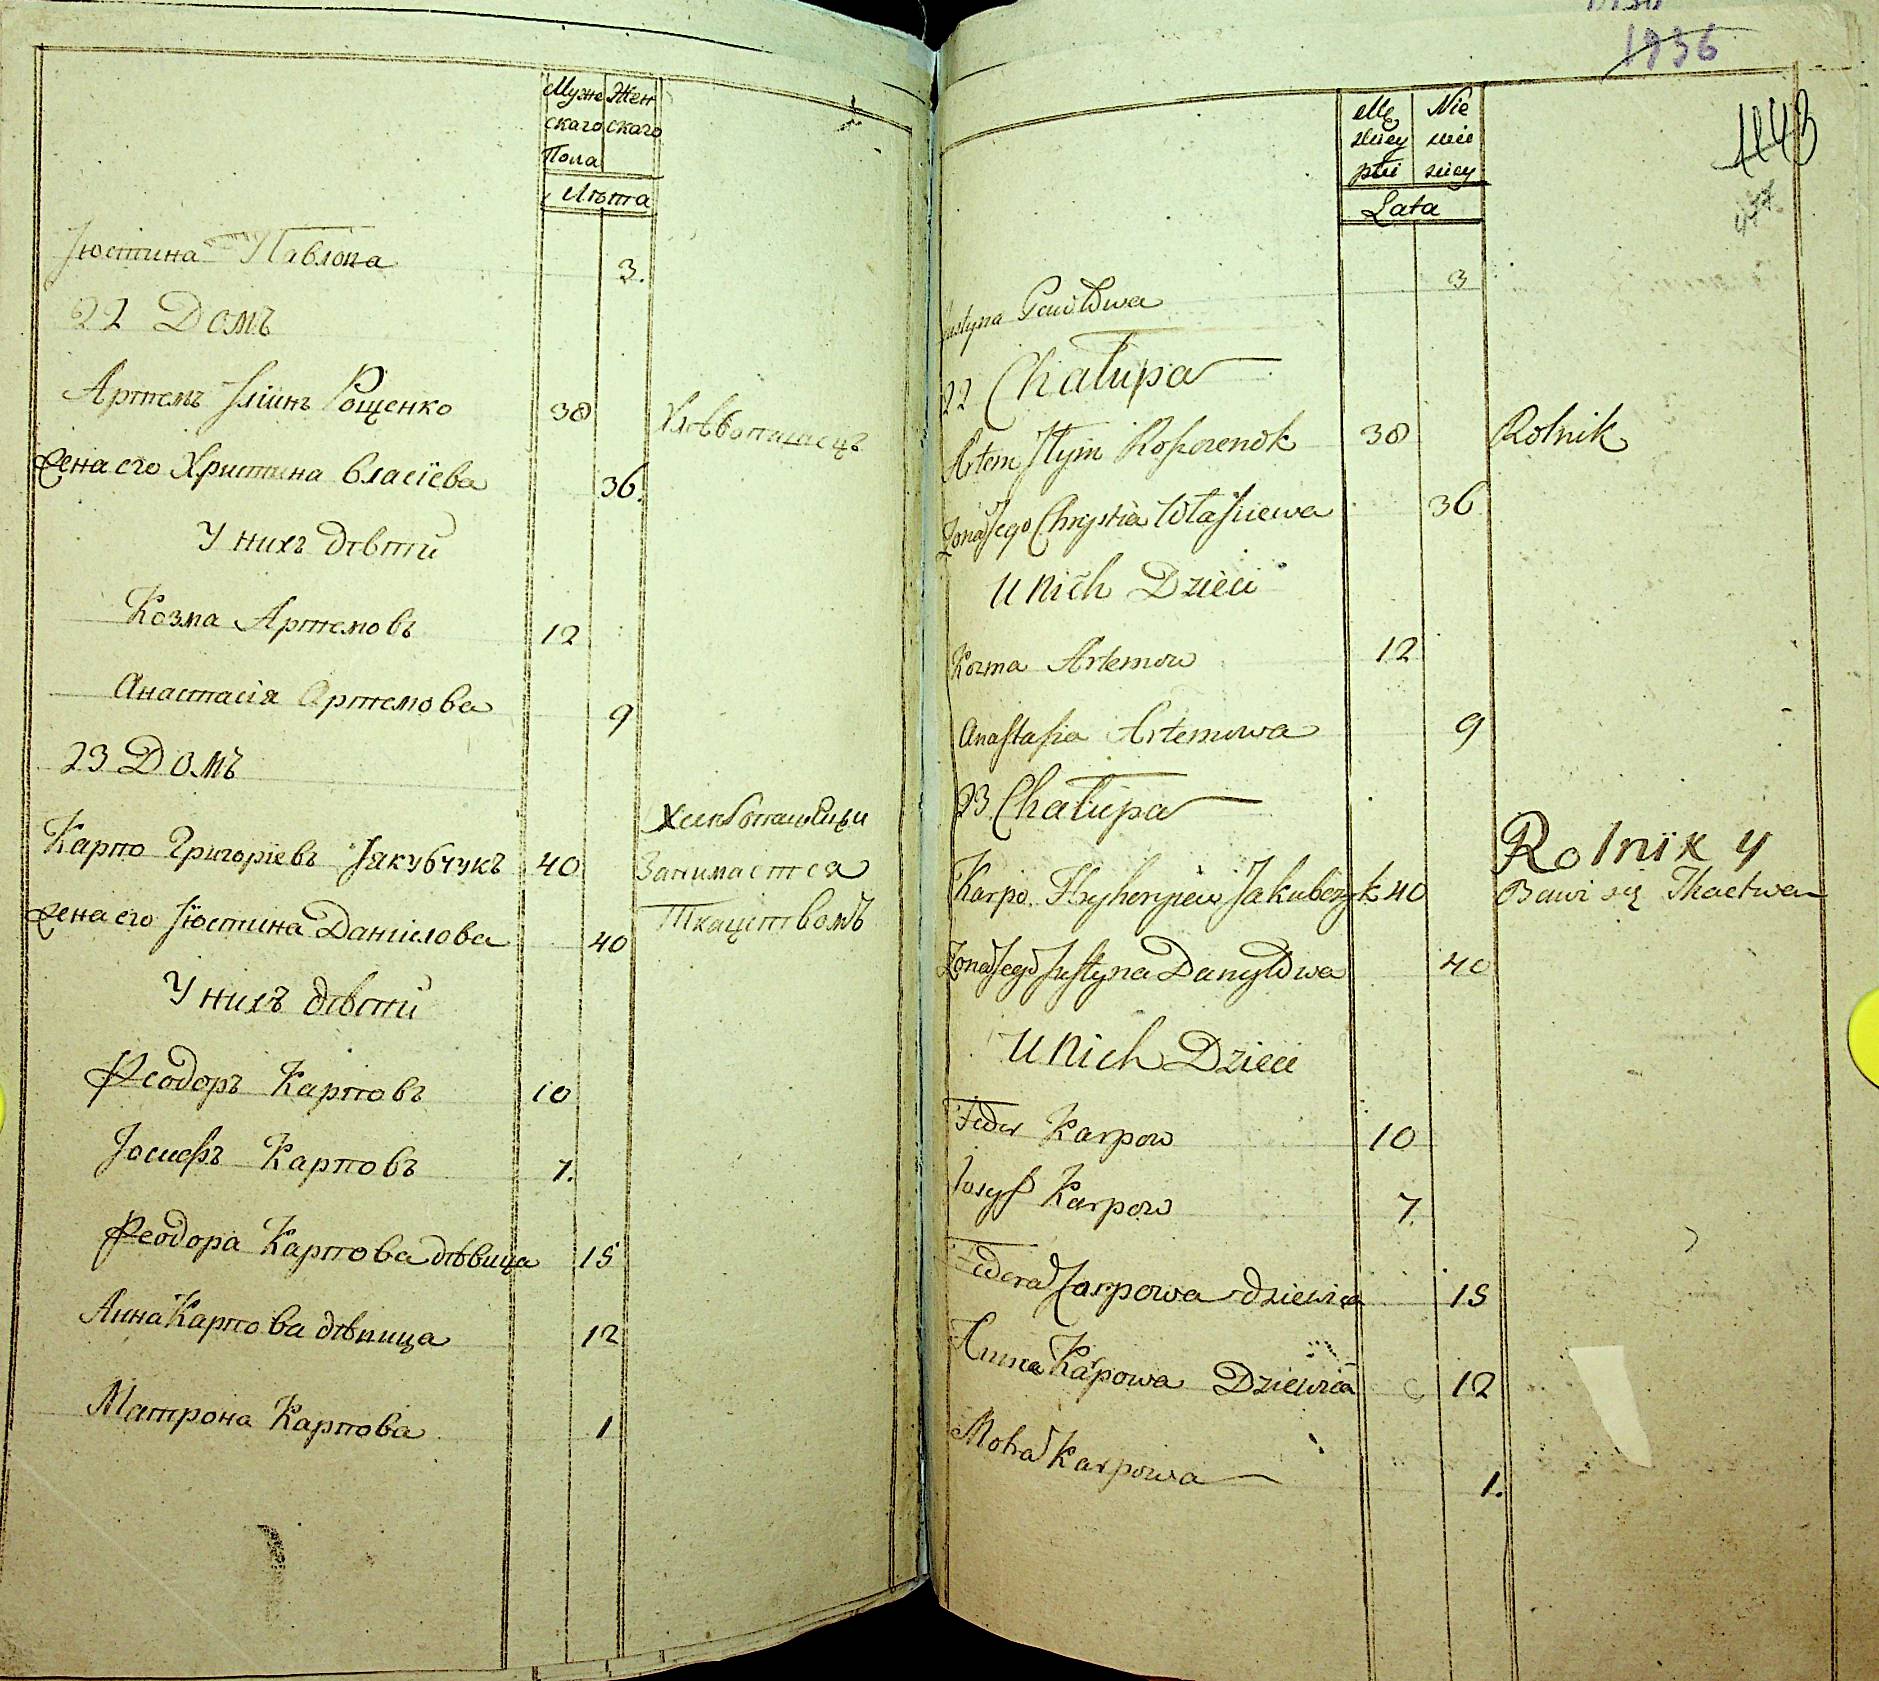 Муже Жен
скаго скаго
Пола
Лѣта
Іюстина Павлова 3.
22 Домъ
Артемъ Іліинъ Рощенко 38 Хлѣбопашецъ
Жена его Христина Власіева 36.
У нихъ дѣти
Козма Артемовъ 12
Анастасія Артемова 9
23 Домъ
Хлѣбопашецъ и
Карпо Григоріевъ Якубчукъ 40 Занимается
Жена его Іюстина Даніилова 40 Ткацтвомъ
У нихъ дѣти
Феодоръ Карповъ 10
Іосифъ Карповъ 7.
Феодора Карпова дѣвица 15
Анна Карпова дѣвица 12
Матрона Карпова 1
1936
1143
Mę Nie
szczy wie
zny sczy
Lata
Justyna Pawłowa 3
22 Chałupa
Artem Ilyin Roszczenok 38 Rolnik
Żona Jego Chrystia Własiiewa 36
U Nich Dzieci
Kozma Artemow 12
Anastasia Artemowa 9
23 Chałupa
Rolnik y
Karpo Hryhoryiew Jakubczyk 40 Bawi się Tkactwem
Żona Jego Justyna Danyłowa 40
U Nich Dzieci
Fedor Karpow 10
Iosyf Karpow 7.
Fedora Karpowa dziewica 15
Anna Karpowa Dziewica 12
Motra Karpowa 1.